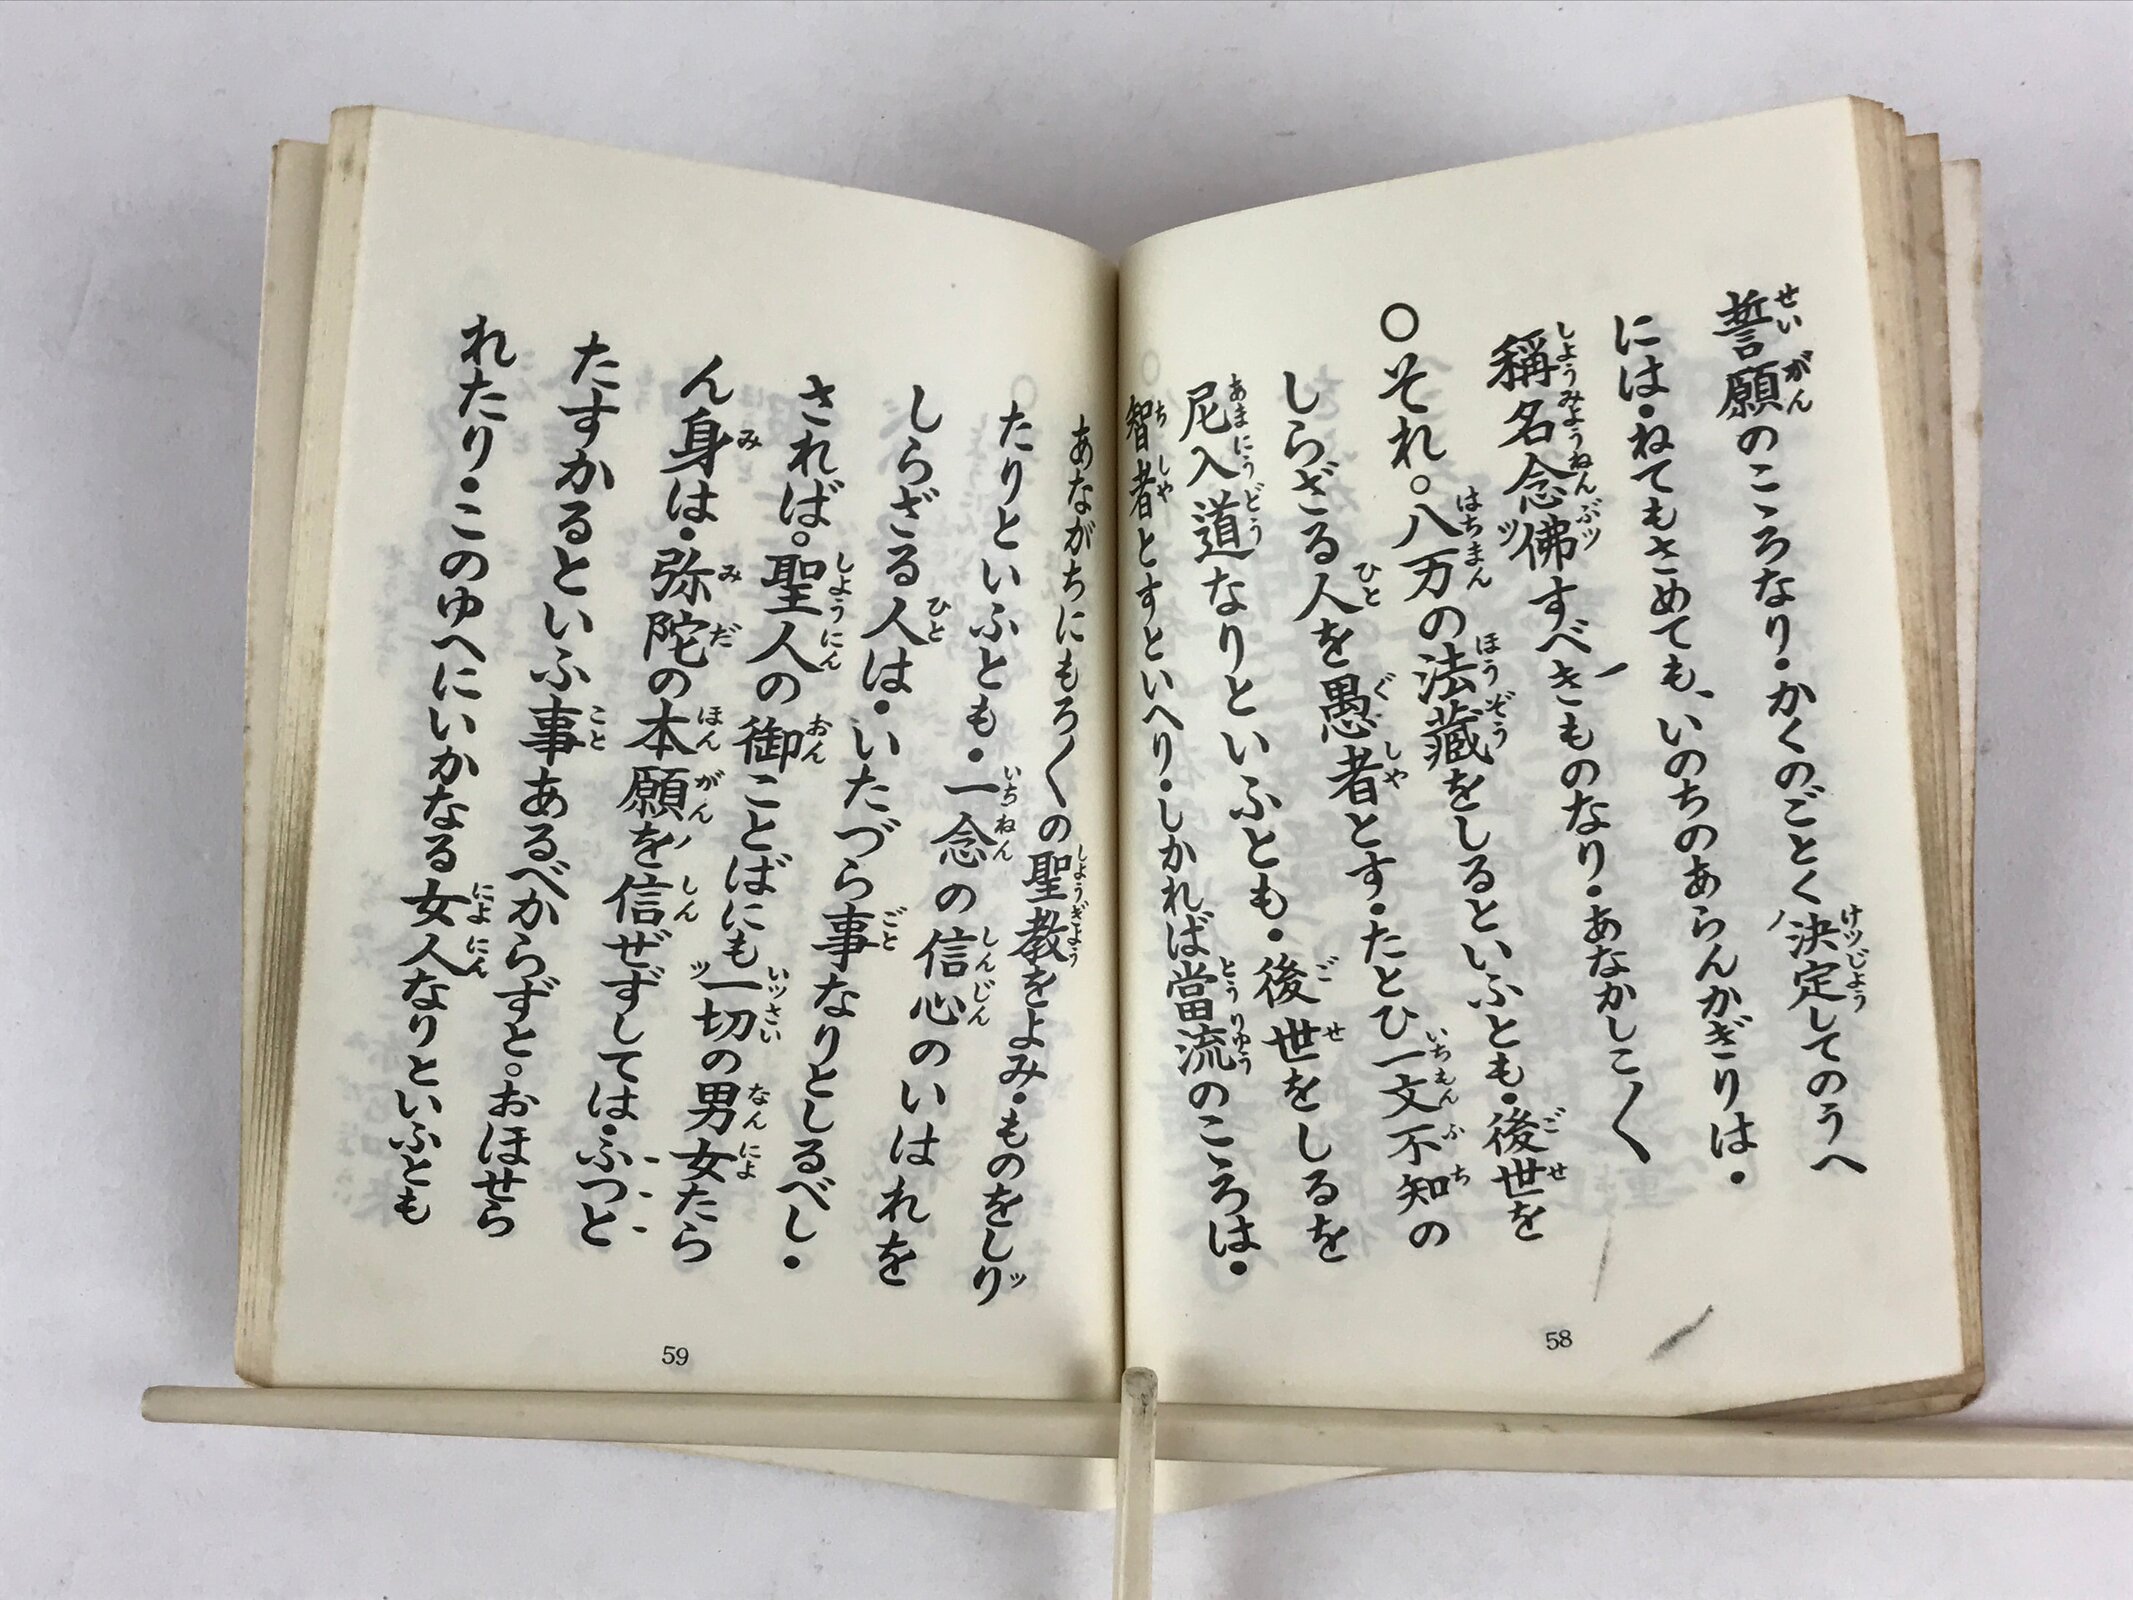 誓願のこゝろなり・かくのごとく決定してのうへ
には・ねてもさめても、いのちのあらんかぎりは・
稱名念佛すべきものなり・あなかしこ〱
○それ。八万の法藏をしるといふとも・後世を
しらざる人を愚者とす・たとひ一文不知の
尼入道なりといふとも・後世をしるを
智者とすといへり・しかれば當流のこゝろは・
58
あながちにもろ〱の聖教をよみ・ものをしりッ
たりといふとも・一念の信心のいはれを
しらざる人は・いたづら事なりとしるべし・
されば。聖人の御ことばにも一切の男女たら
ん身は・弥陀の本願を信ぜずしては・ふつと
たすかるといふ事あるべからずと。おほせら
れたり・このゆへにいかなる女人なりといふとも
59